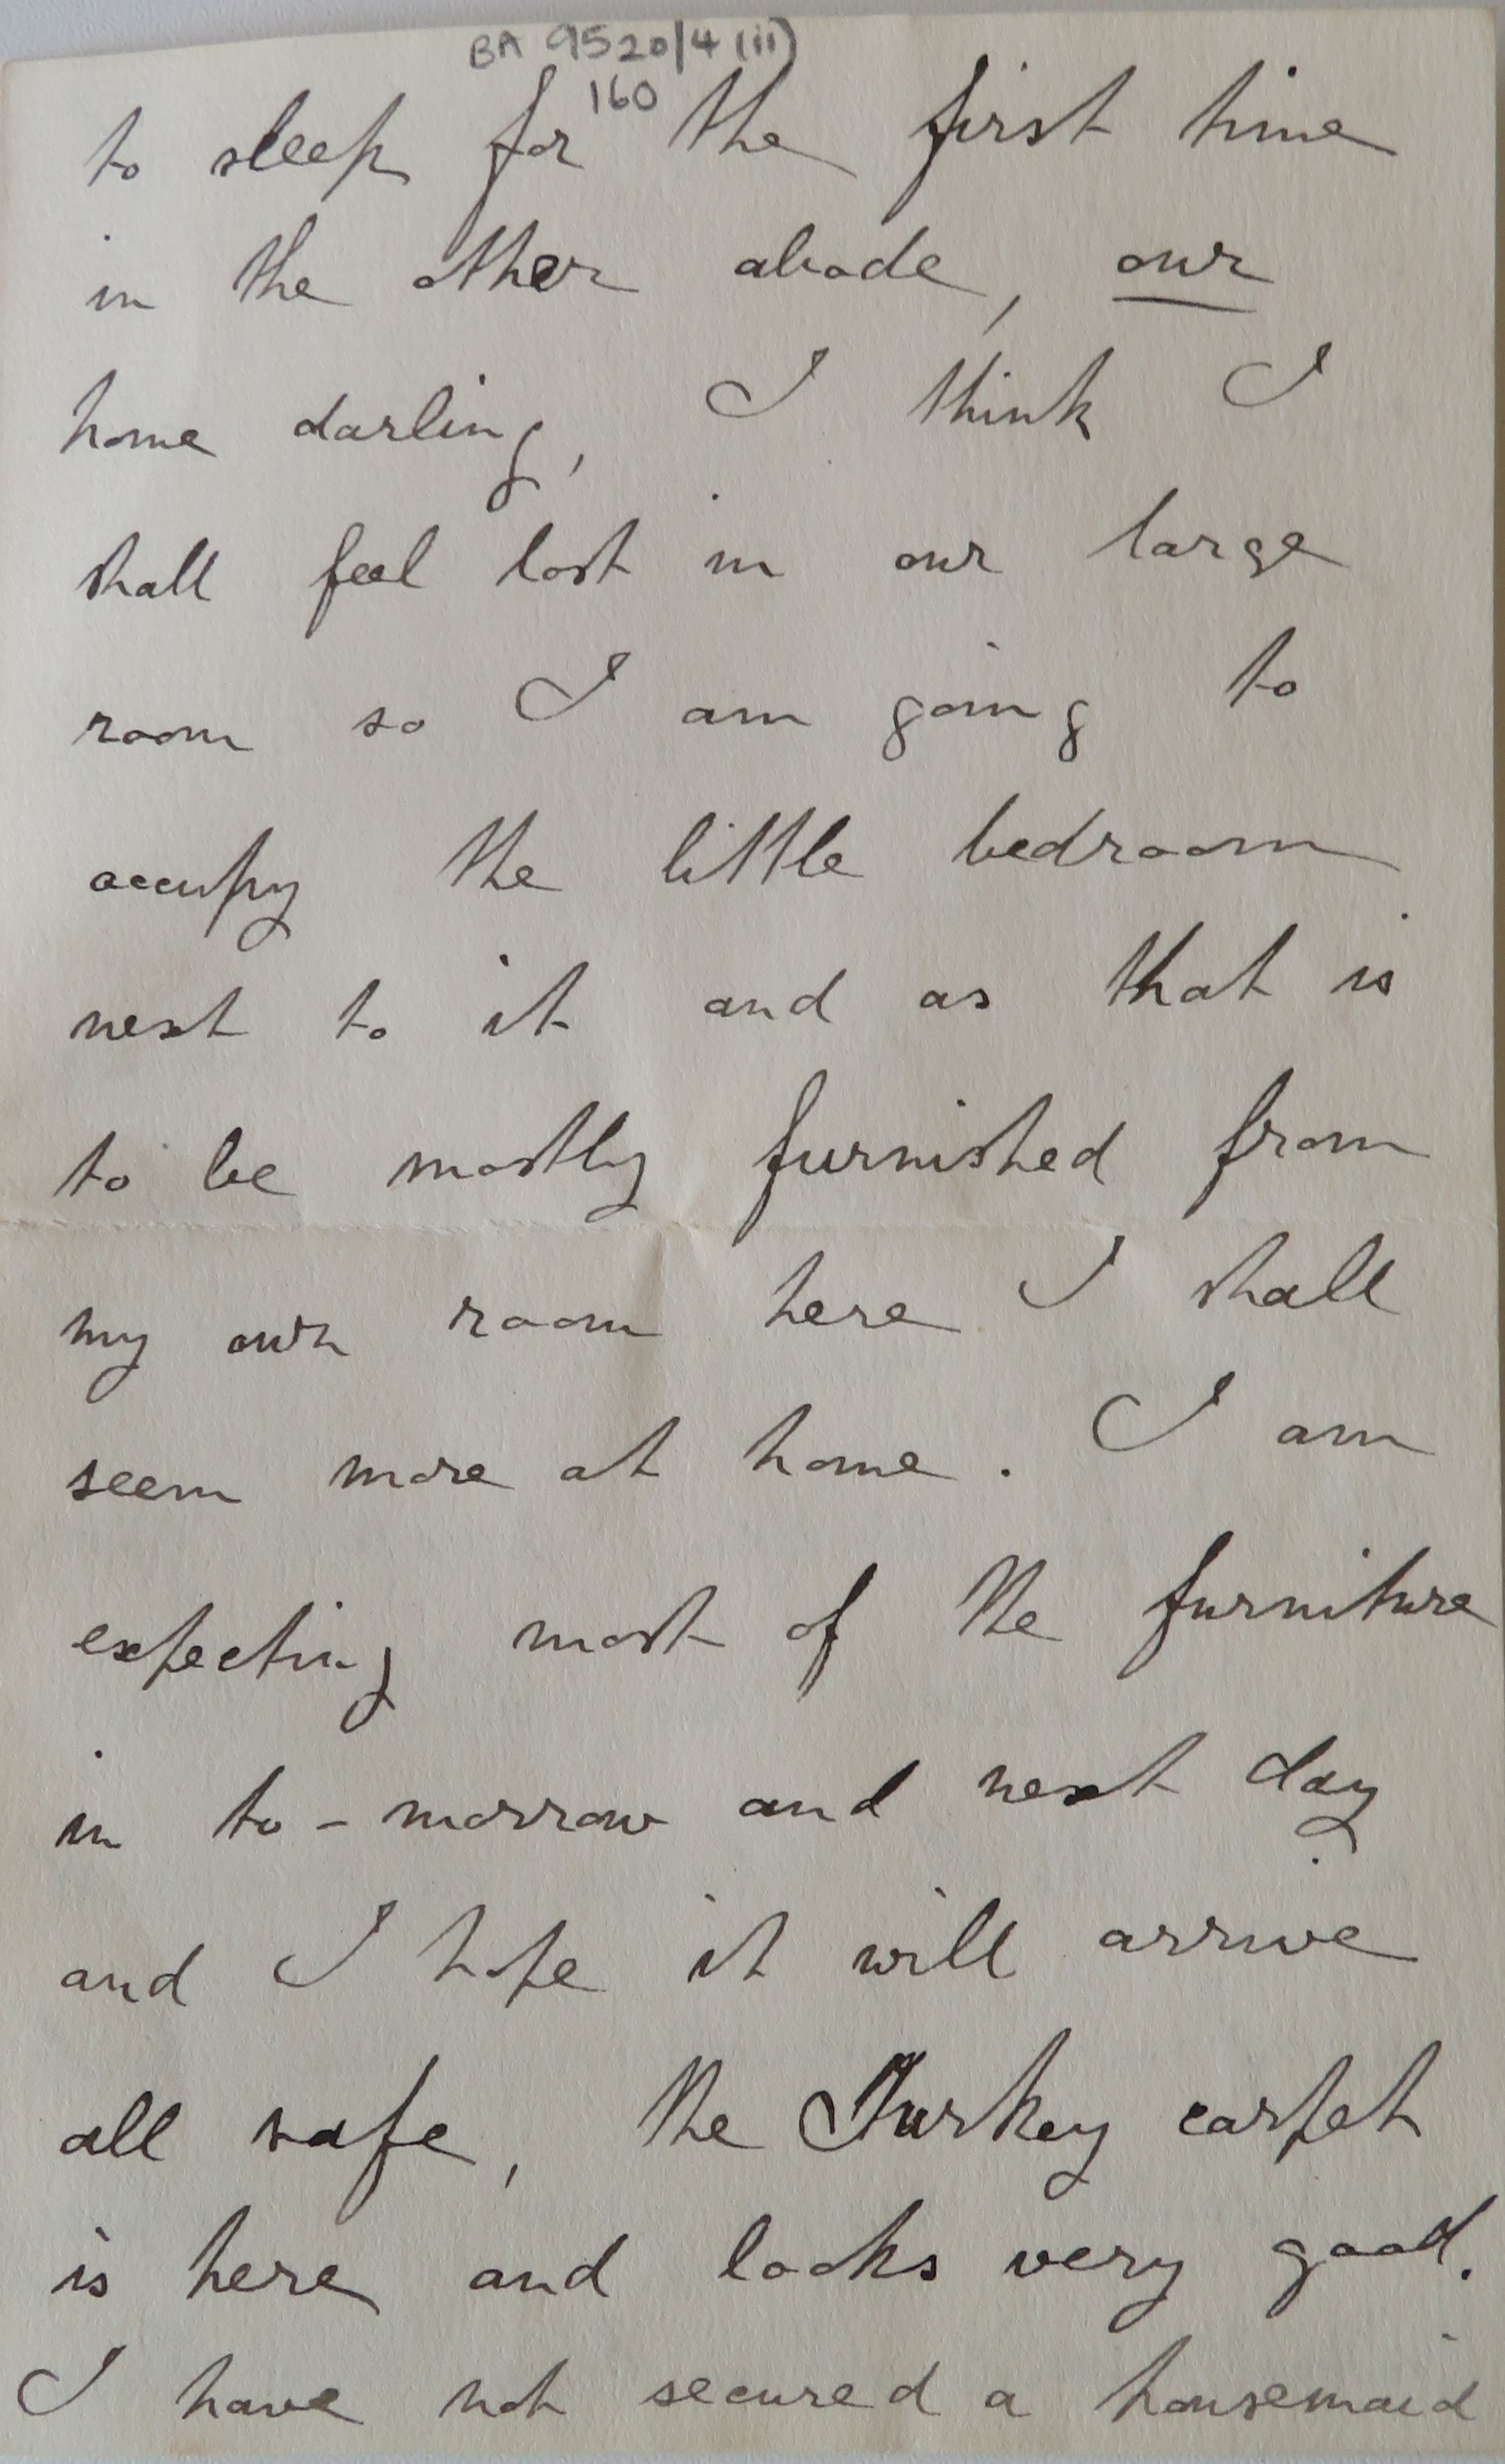 BA 9520/4 (ii)
160
to sleep for the first time
in the other abode, our
home darling, I think I
shall feel lost in our large
room so I am going to
occupy the little bedroom
next to it and as that is
to be mostly furnished from
my own room here I shall
seem more at home. I am
expecting most of the furniture
in to-morrow and next day
and I hope it will arrive
all safe, the Turkey carpet
is here and looks very good.
I have not secured a housemaid